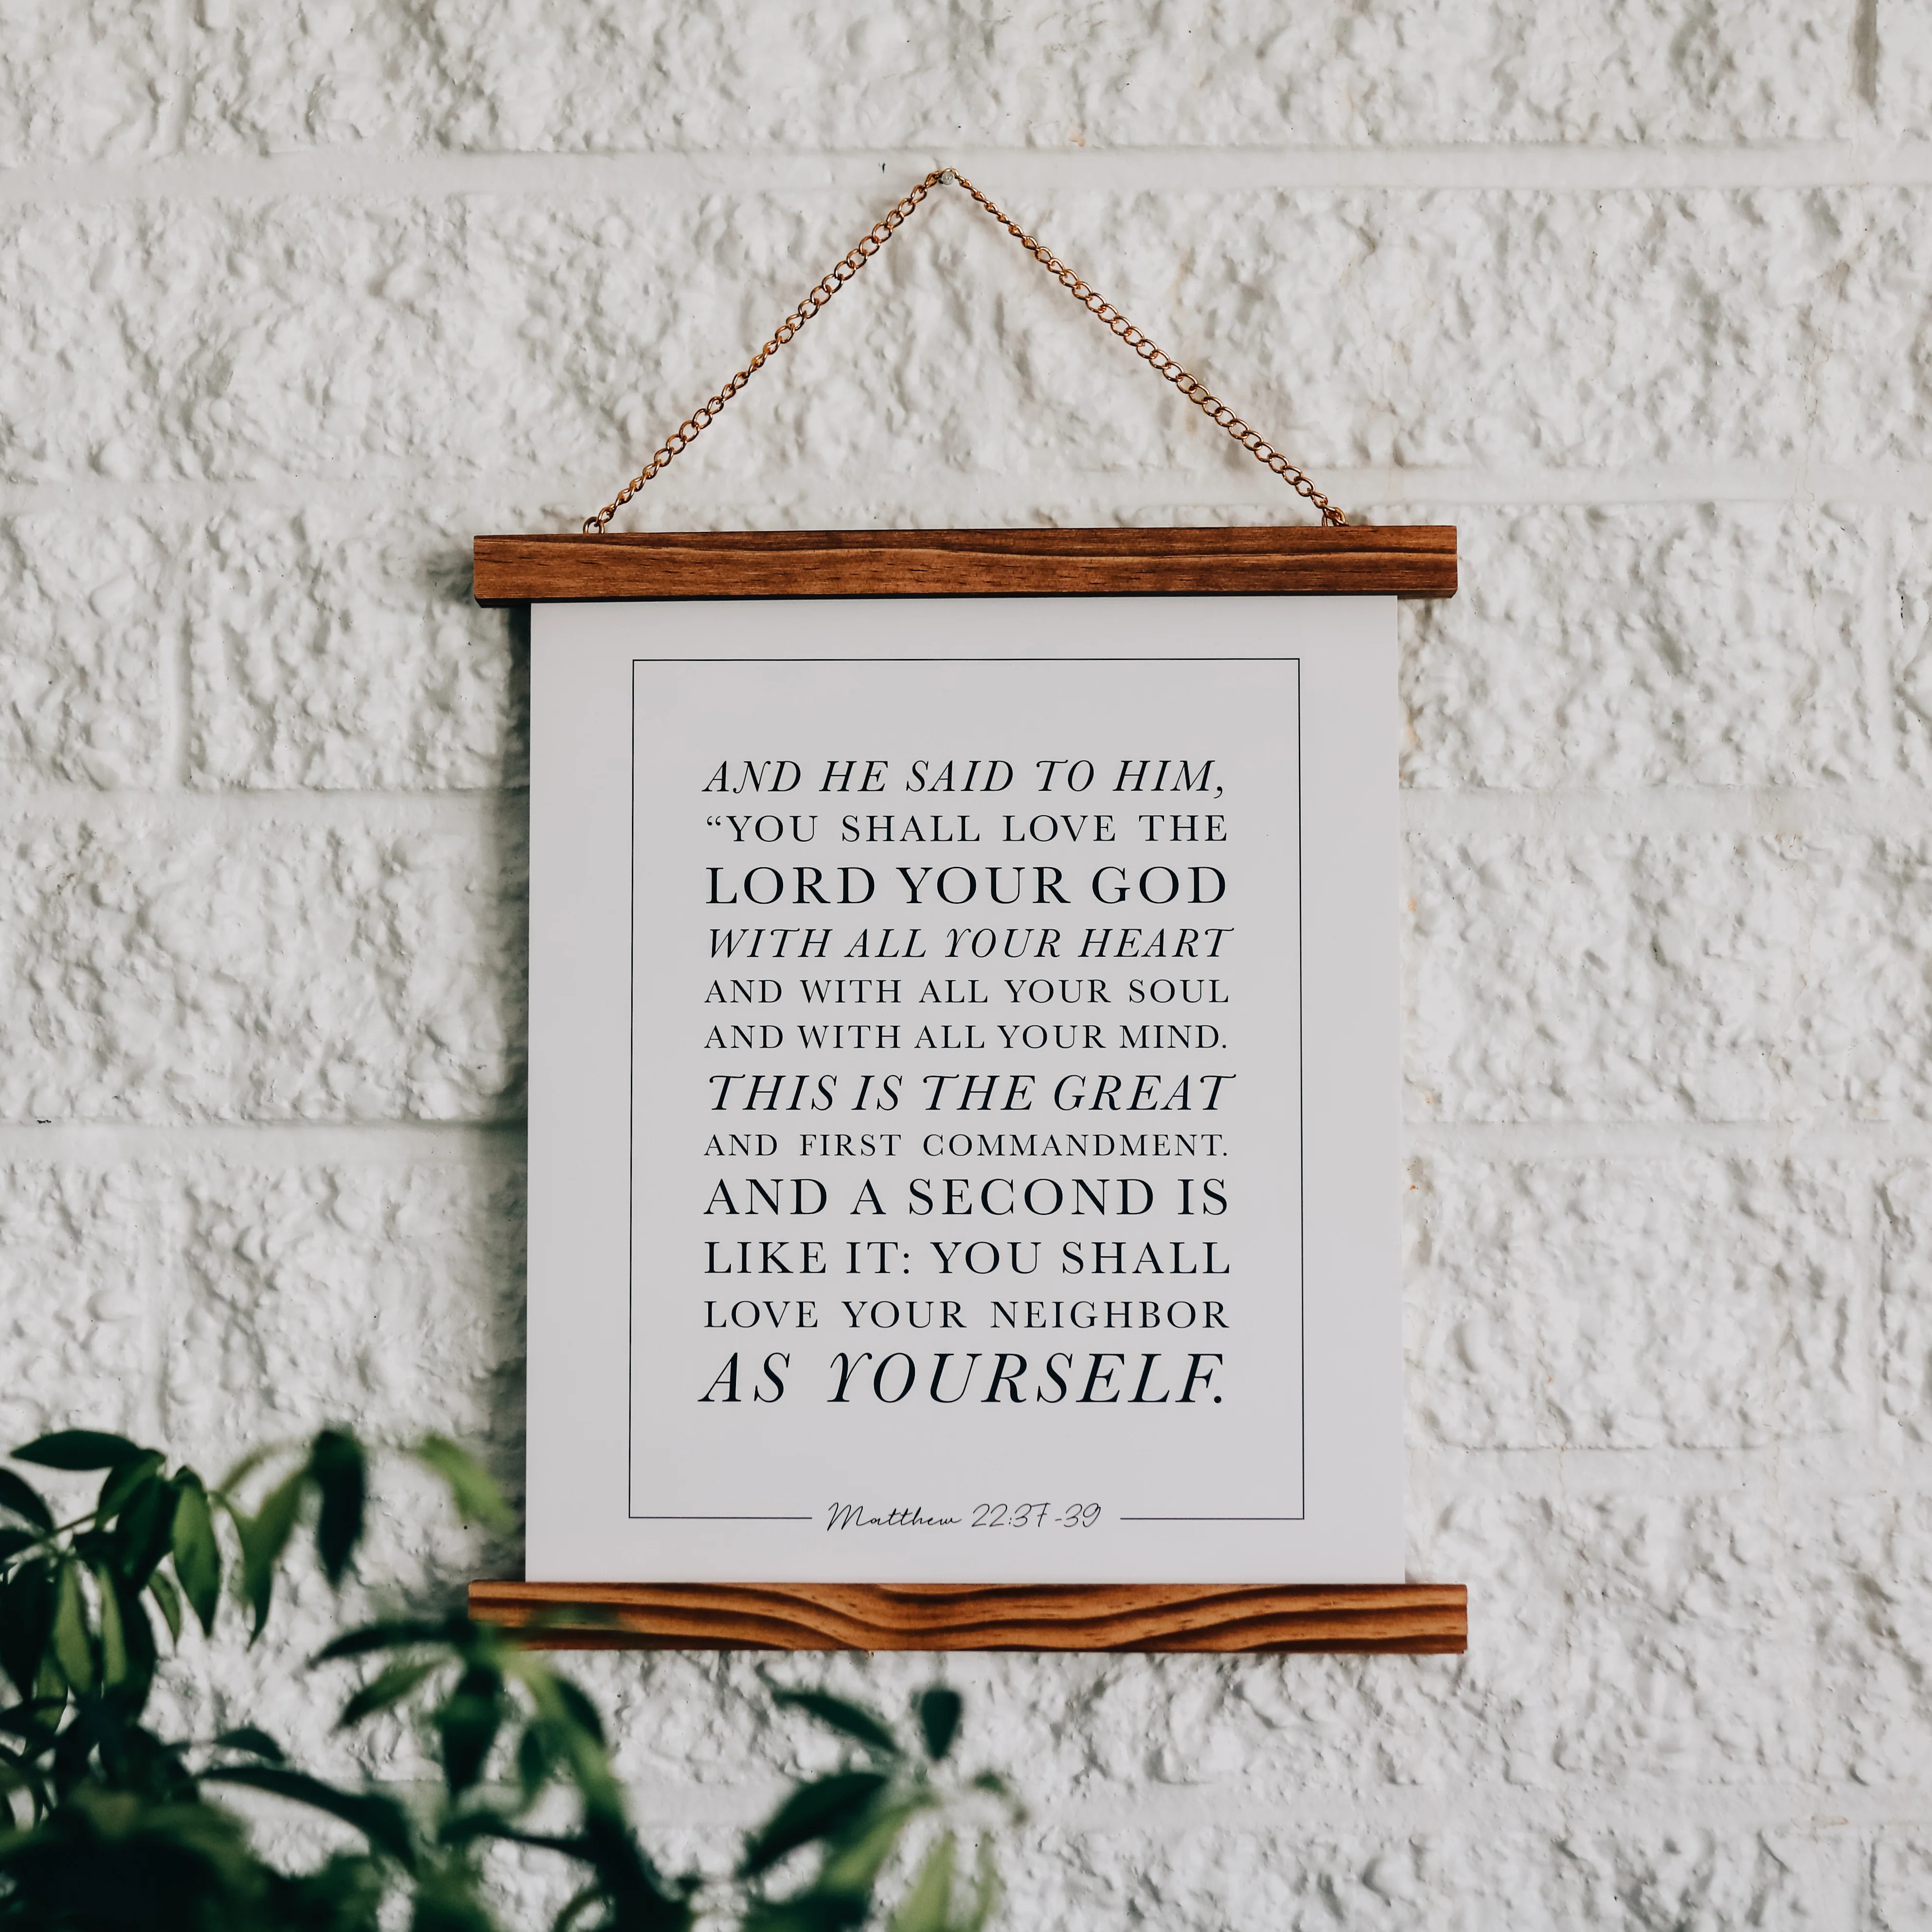 AND HE SAID TO HIM,
“YOU SHALL LOVE THE
LORD YOUR GOD
WITH ALL YOUR HEART
AND WITH ALL YOUR SOUL
AND WITH ALL YOUR MIND.
THIS IS THE GREAT
AND FIRST COMMANDMENT.
AND A SECOND IS
LIKE IT: YOU SHALL
LOVE YOUR NEIGHBOR
AS YOURSELF.
Matthew 22:37-39